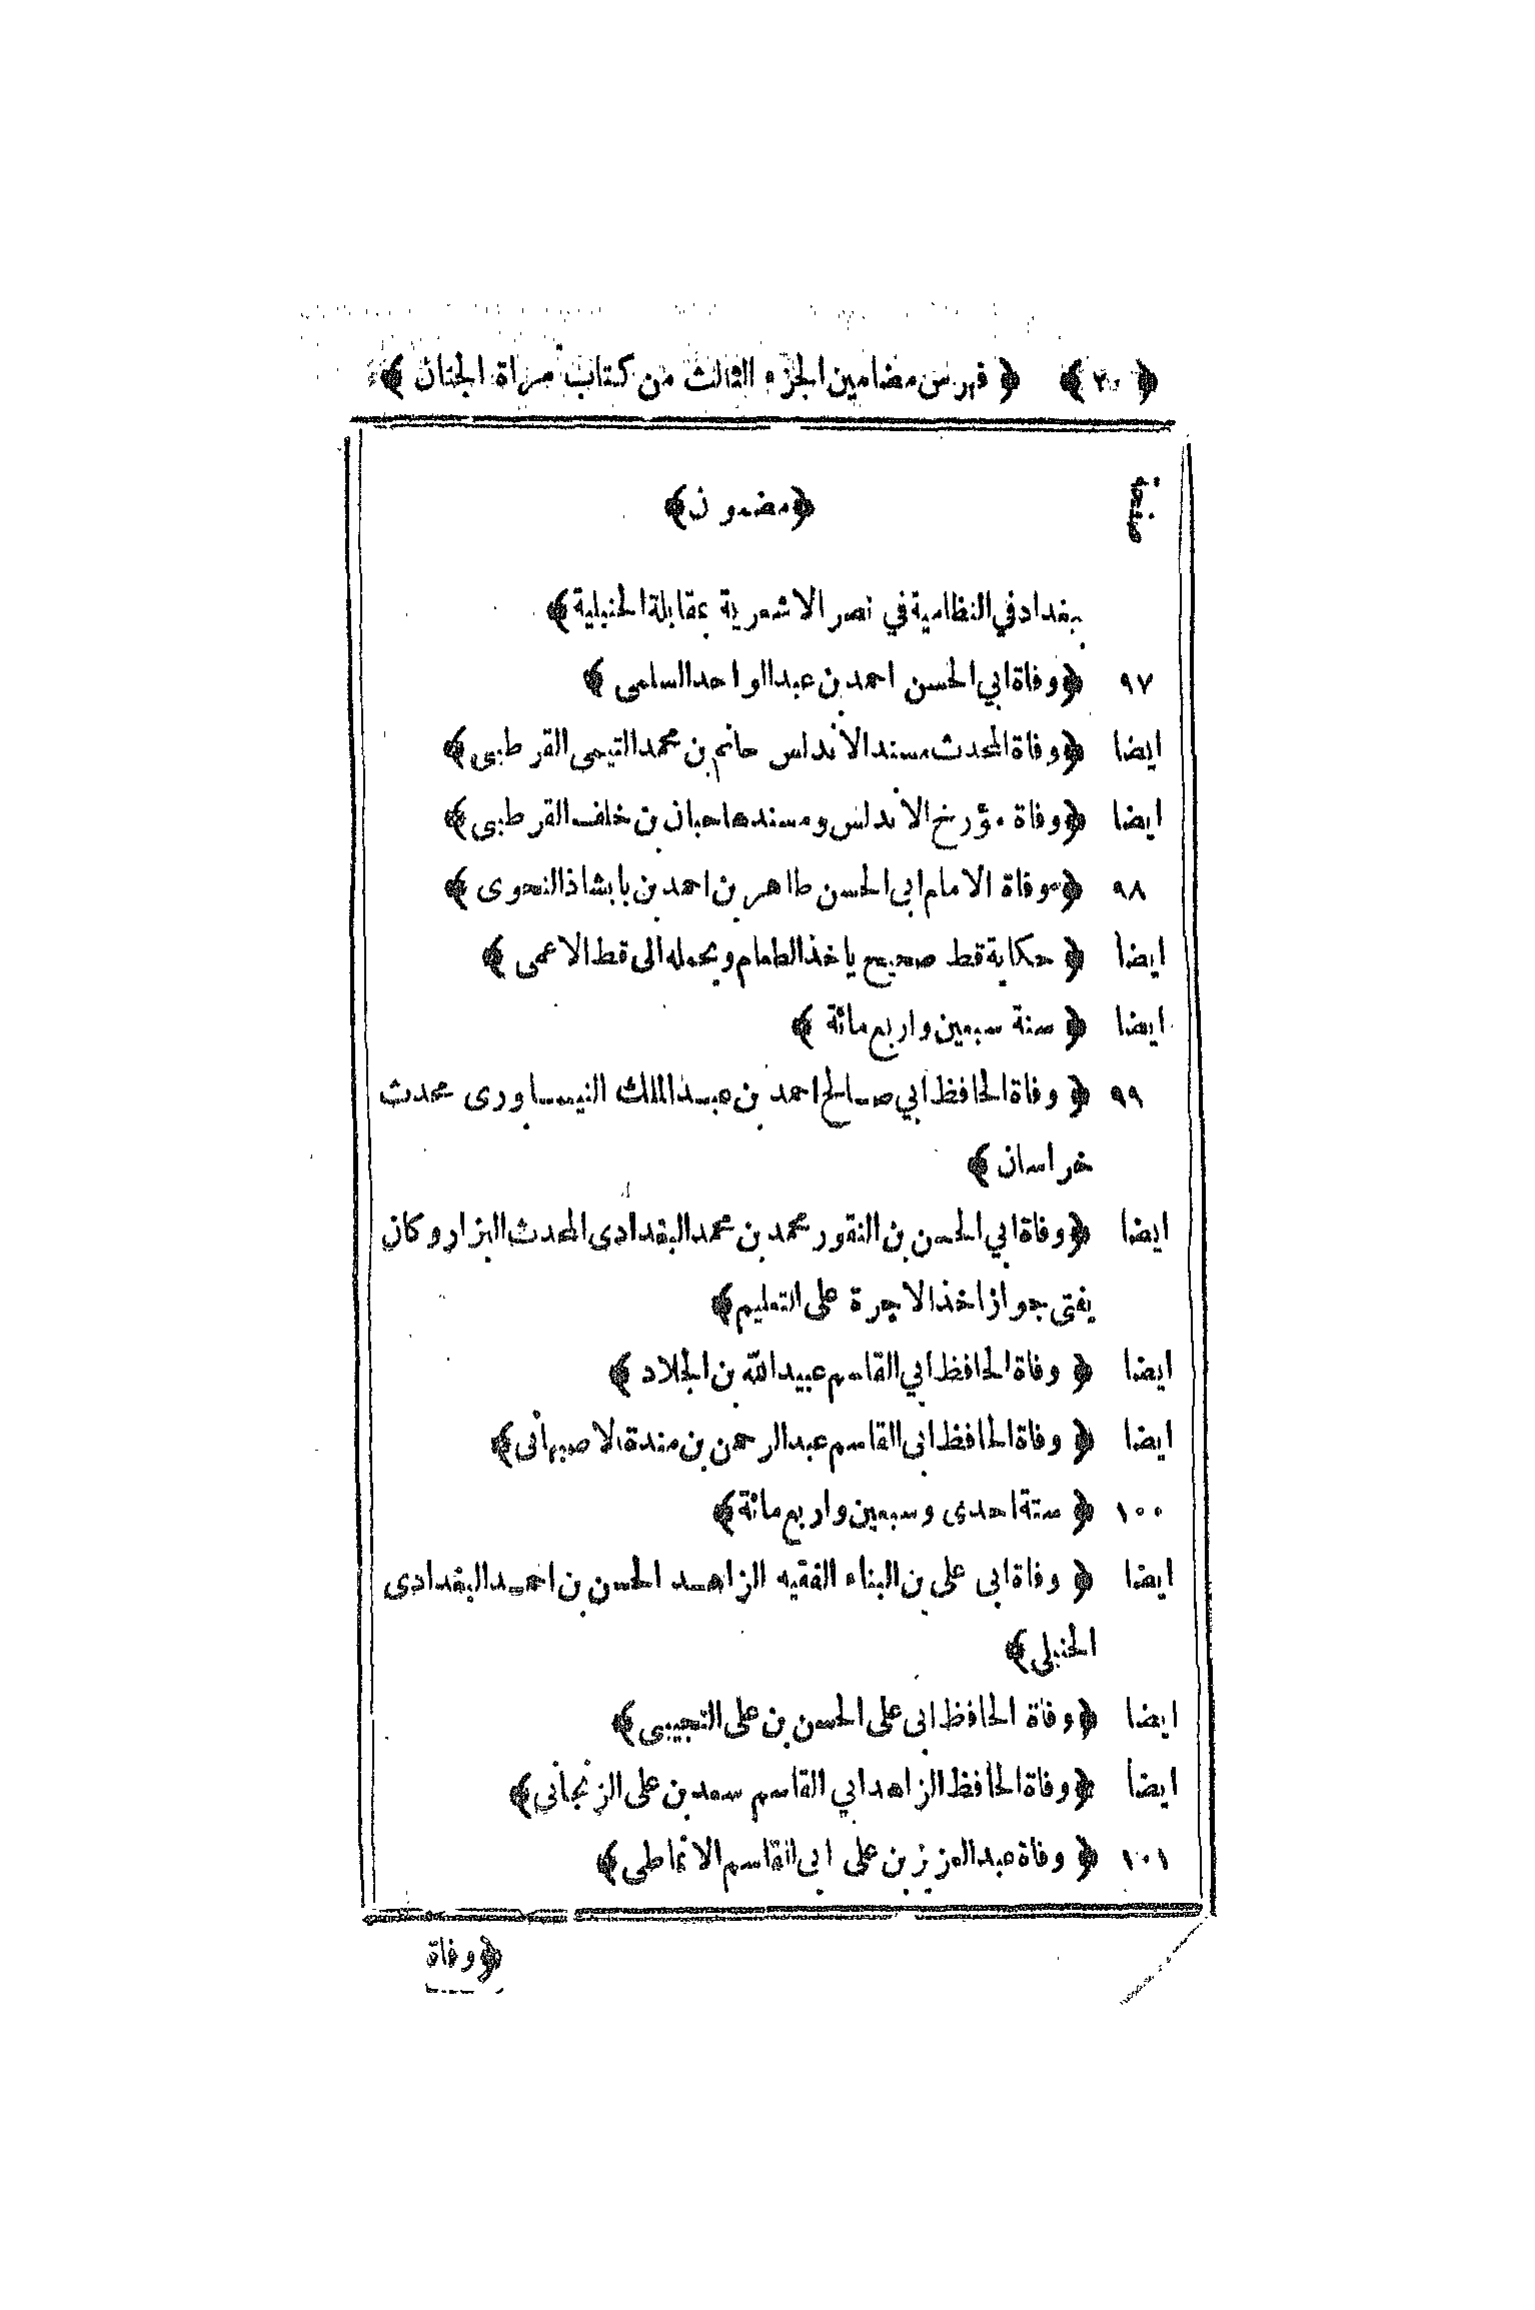 ﴿ ٢٠ ﴾ ﴿ فهرس مضامين الجزء الثالث من كتاب مراة الجنان ﴾
صفحة ﴿مضمون﴾
ببغداد في النظامية في نصر الاشعرية بمقابلة الحنبلية ﴾
٩٧ ﴿ وفاة ابي الحسن احمد بن عبد الواحد السلمى ﴾
ايضا ﴿ وفاة المحدث مسند الاندلس حاتم بن محمد التيمى القرطبى ﴾
ايضا ﴿ وفاة مؤرخ الاندلس ومسندها حبان بن خلف القرطبى ﴾
٩٨ ﴿ وفاة الامام ابى الحسن طاهر بن احمد بن بابشاذ النحوى ﴾
ايضا ﴿ حكاية قط صحيح ياخذ الطعام ويحمله الى قط الاعمى ﴾
ايضا ﴿ سنة سبعين واربع مائة ﴾
٩٩ ﴿ وفاة الحافظ ابي صالح احمد بن عبد الملك النيسابورى محدث
خراسان ﴾
ايضا ﴿ وفاة ابي الحسن بن النقور محمد بن محمد البغدادى المحدث البزار وكان
يفتى بجواز اخذ الاجرة على التعليم ﴾
ايضا ﴿ وفاة الحافظ ابي القاسم عبيد الله بن الجلاد ﴾
ايضا ﴿ وفاة الحافظ ابى القاسم عبد الرحمن بن مندة الاصبهانى ﴾
١٠٠ ﴿ سنة احدى وسبعين واربع مائة ﴾
ايضا ﴿ وفاة ابى على بن البناء الفقيه الزاهد الحسن بن احمد البغدادى
الحنبلى ﴾
ايضا ﴿ وفاة الحافظ ابى على الحسن بن على التجيبى ﴾
ايضا ﴿ وفاة الحافظ الزاهد ابي القاسم سعد بن على الزنجانى ﴾
١٠١ ﴿ وفاة عبد العزيز بن على ابى القاسم الانماطى ﴾
﴿ وفاة